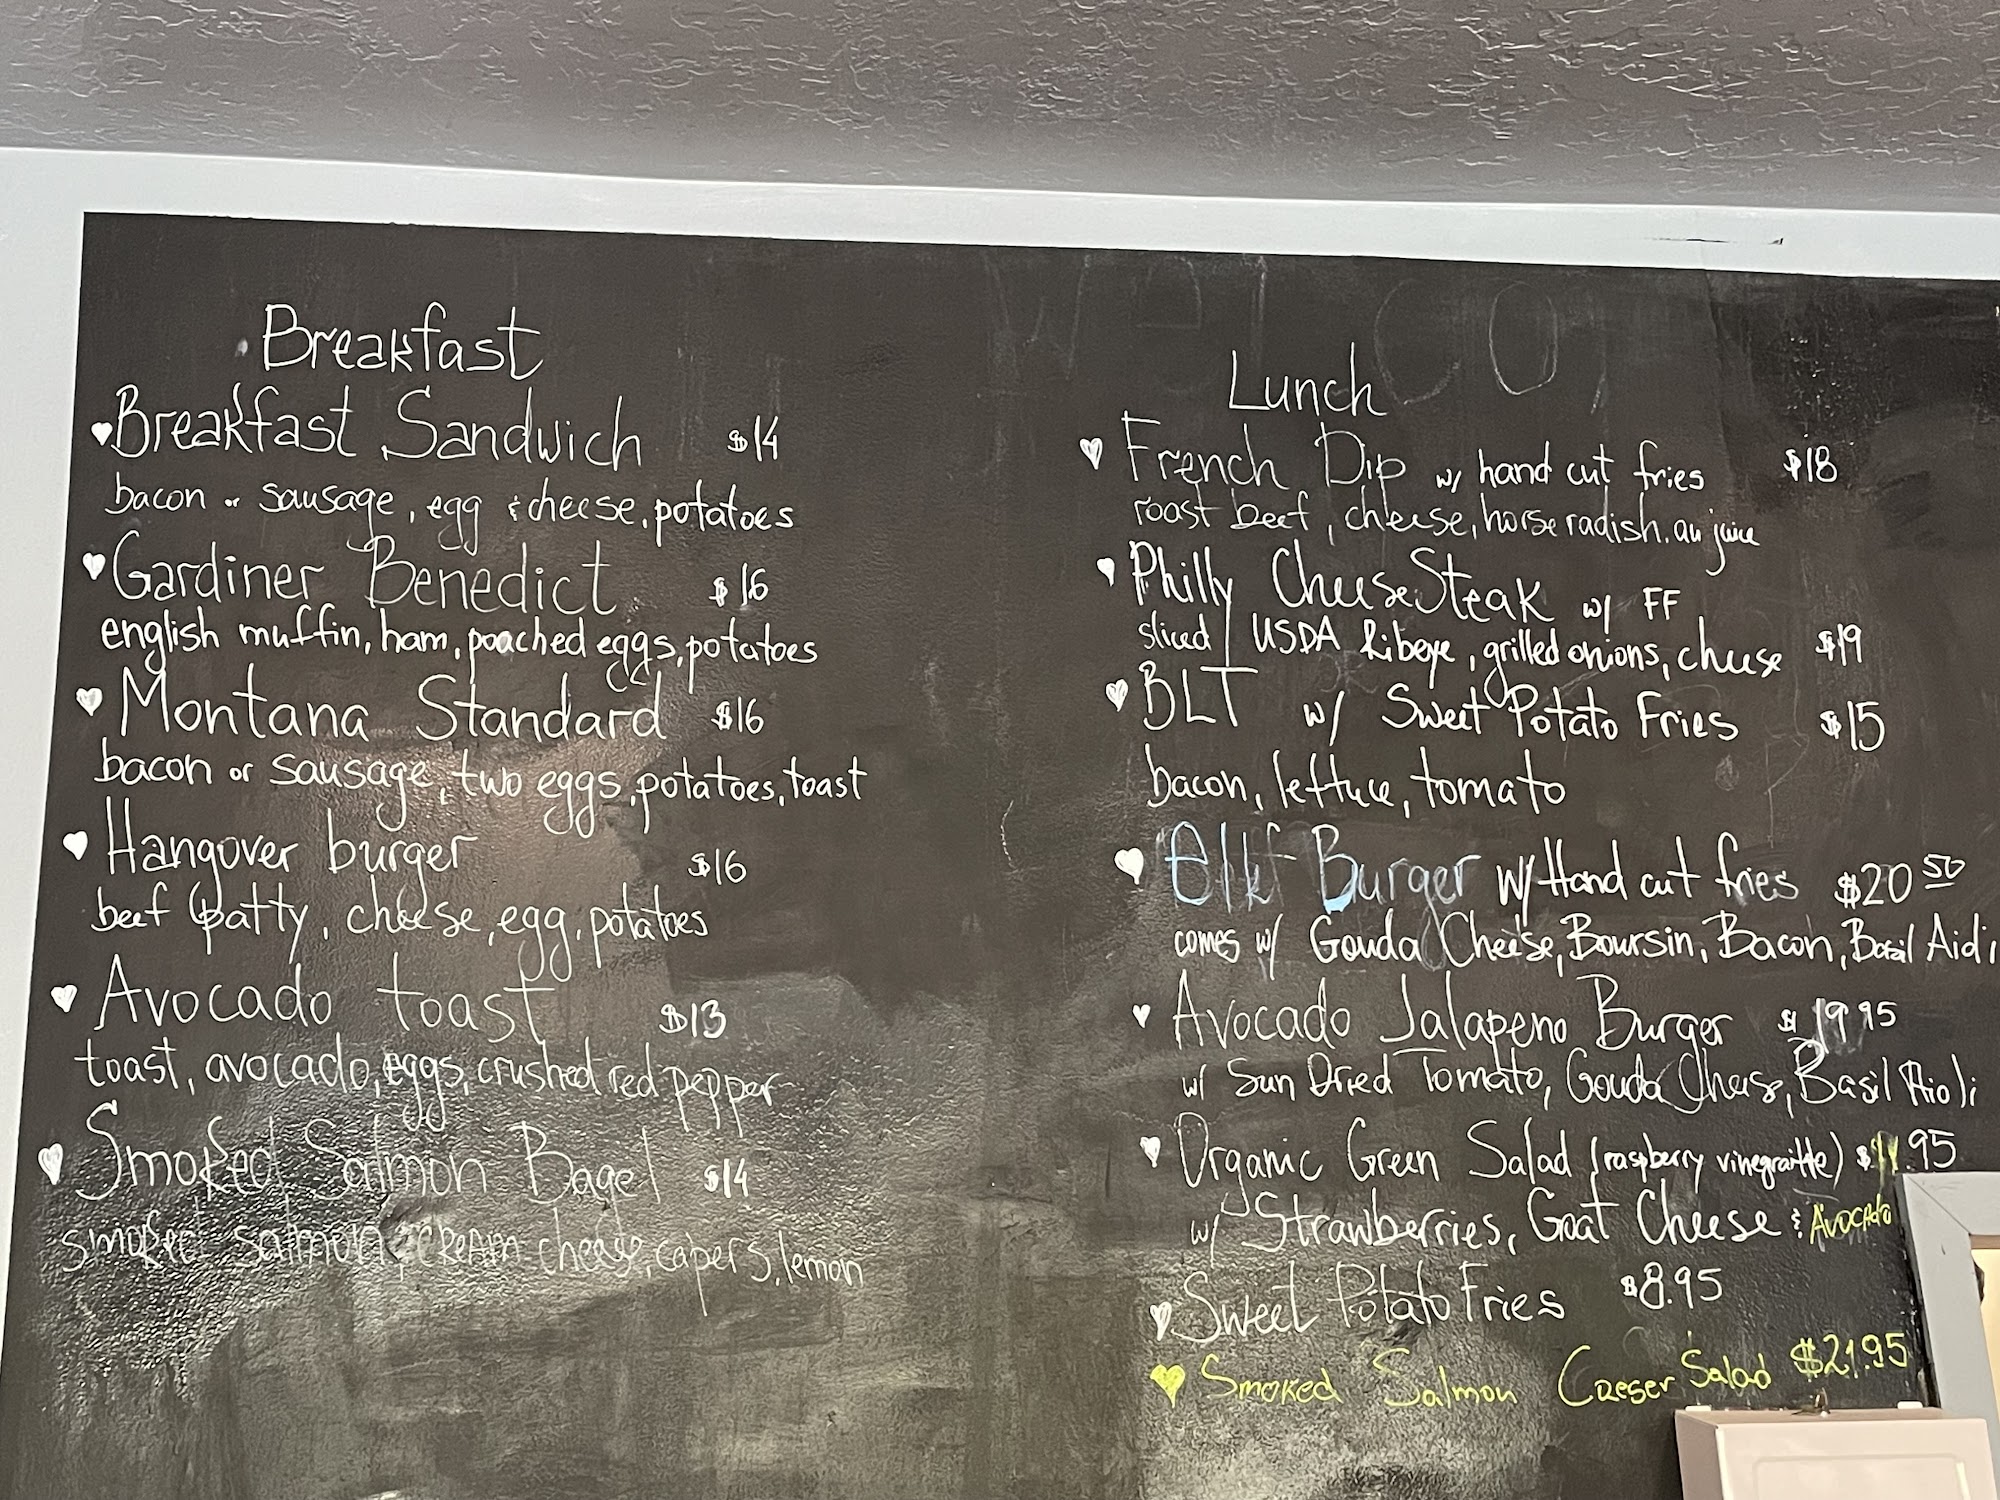 Breakfast
Breakfast Sandwich $14
bacon or sausage, egg & cheese, potatoes
Gardiner Benedict $16
english muffin, ham, poached eggs, potatoes
Montana Standard $16
bacon or sausage, two eggs, potatoes, toast
Hangover burger $16
beef patty, cheese, egg, potatoes
Avocado toast $13
toast, avocado, eggs, crushed red pepper
Smoked Salmon Bagel $14
smoked salmon, cream cheese, capers, lemon
Lunch
French Dip w/ hand cut fries $18
roast beef, cheese, horseradish, au juice
Philly CheeseSteak w/ FF
sliced USDA Ribeye, grilled onions, cheese $19
BLT w/ Sweet Potato Fries $15
bacon, lettuce, tomato
Burger w/ Hand cut fries $20 50
comes w/ Gouda Cheese, Boursin, Bacon, Basil
Avocado Jalapeno Burger $19 95
w/ Sun Dried Tomato, Gouda Cheese, Basil Aioli
Organic Green Salad (raspberry vinegraitte)
w/ Strawberries, Goat Cheese & Avocado
Sweet Potato Fries $8.95
Smoked Salmon Caeser Salad $21.95